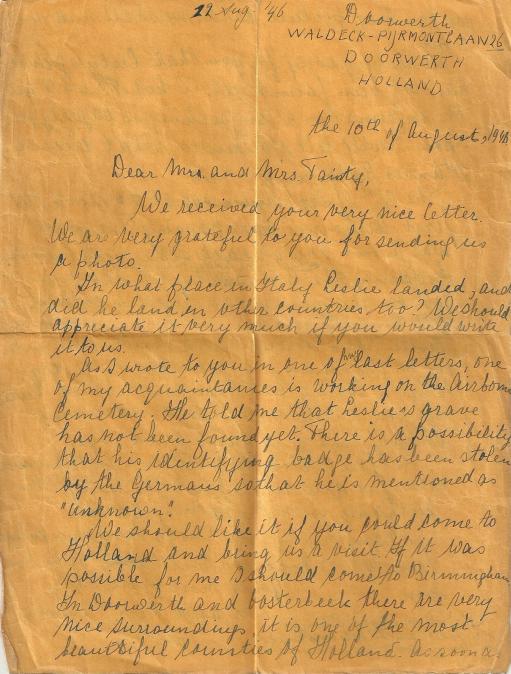 12 Aug '46
Doorwerth
WALDECK-PIJRMONTLAAN 26
DOORWERTH
HOLLAND
the 10th of August, 1946
Dear Mrs. and Mrs.
We received your very nice letter.
We are very grateful to you for sending us
a photo.
In what place in Italy Leslie landed, and
did he land in other countries too? We should
appreciate it very much if you would write
it to us.
As I wrote to you in one of my last letters, one
of my acquaintances is working on the Airborne
Cemetery. He told me that Leslie's grave
has not been found yet. There is a possibility
that his identifying badge has been stolen
by the Germans so that he is mentioned as
"unknown".
We should like it if you could come to
Holland and bring us a visit. If it was
possible for me I should come to Birmingham
In Doorwerth and Oosterbeek there are very
nice surroundings, it is one of the most
beautiful counties of Holland. As soon as